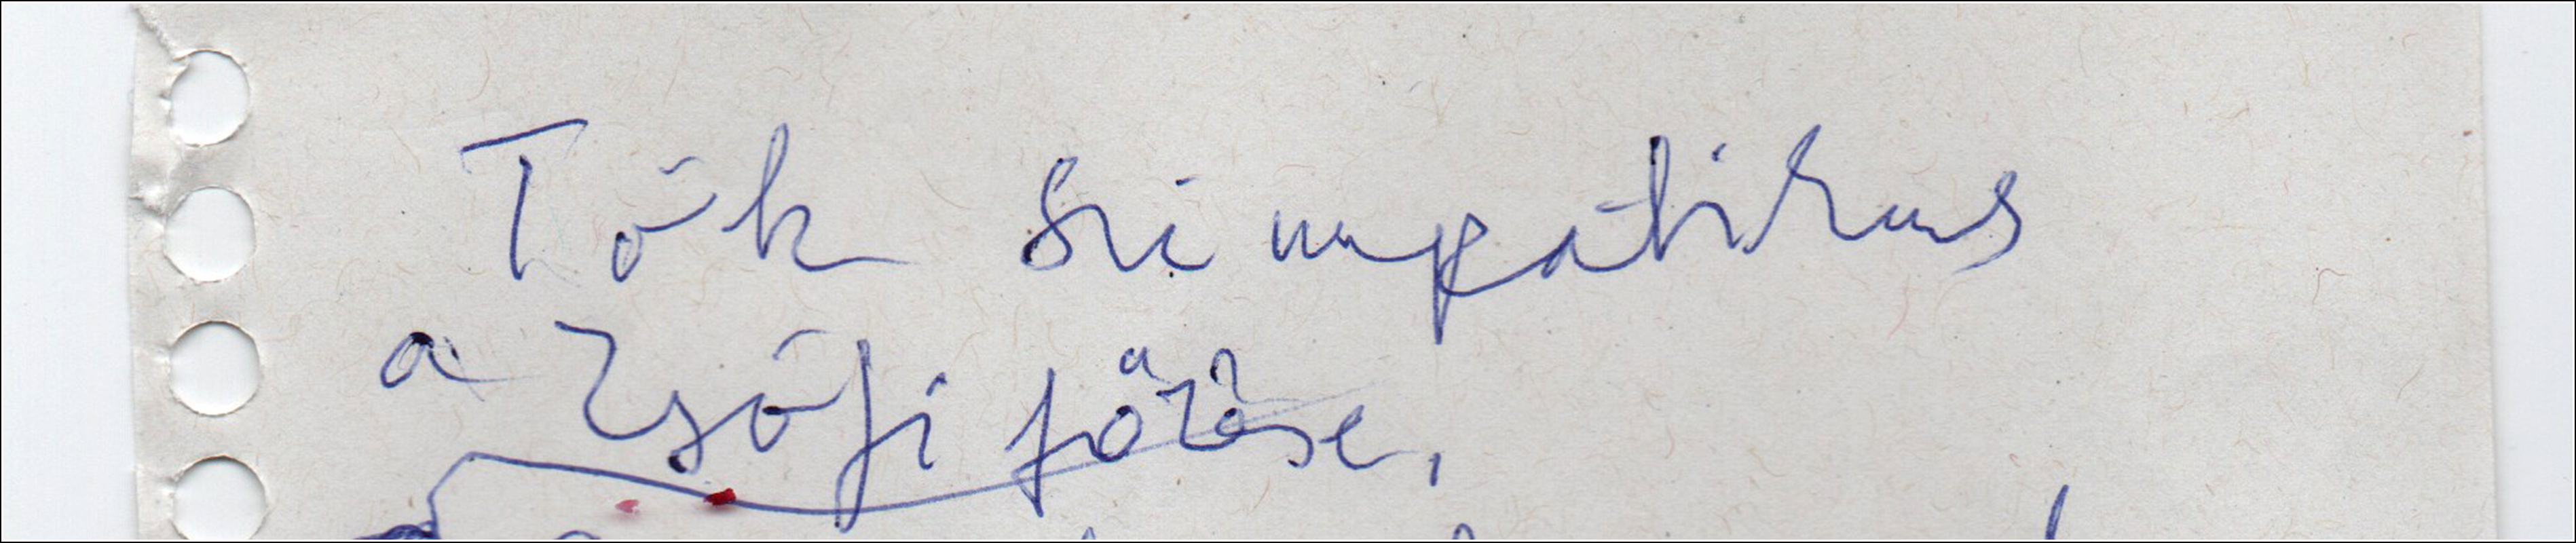 Tök szimpatikus
a Zsófi főzőse,